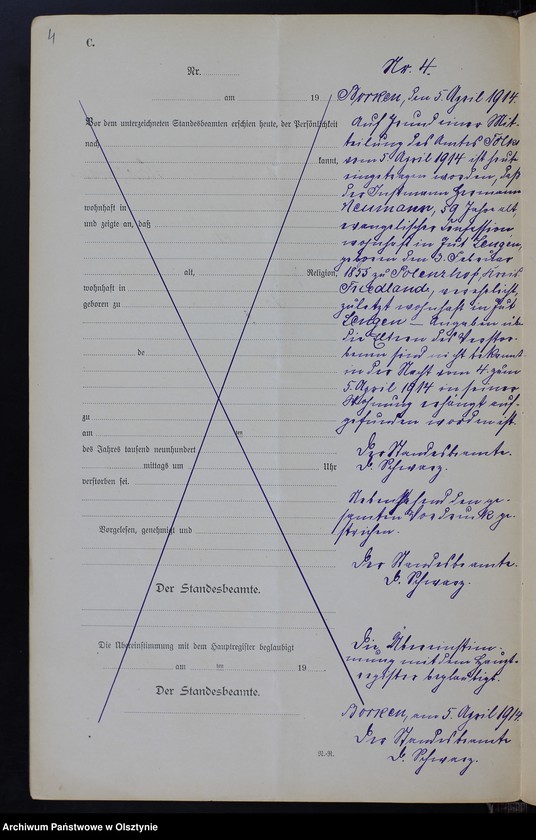 4
C.
Nr.
Nr. 4.
am 19
Borken, den 5. April 1914.
Vor dem unterzeichneten Standesbeamten erschien heute, der Persönlichkeit
nach
kannt,
wohnhaft in
und zeigte an, daß
alt, Religion,
wohnhaft in
geboren zu
de
zu
am ten
des Jahres tausend neunhundert
mittags um Uhr
verstorben sei.
Vorgelesen, genehmigt und
Der Standesbeamte.
Die Übereinstimmung mit dem Hauptregister beglaubigt
am ten 19
Der Standesbeamte.
N.-R.
Auf Grund einer Mit-
teilung des Amts
vom 5. April 1914 ist heute
eingetragen worden, daß
der Instmann Hermann
Neumann, 59 Jahre alt,
evangelischer Konfession
wohnhaft in Gut Lengen,
geboren den 3. Februar
1855 zu Kreis
Friedland, verehelicht,
zuletzt wohnhaft in Gut
Lengen – Angaben über
die Eltern des Verstor-
benen sind nicht bekannt
in der Nacht vom 4. zum
5. April 1914 in seiner
Wohnung erhängt auf-
gefunden worden ist.
Der Standesbeamte.
Schwarz.
Nebenstehend den ge-
samten Vordruck ge-
strichen.
Der Standesbeamte.
Schwarz.
Die Übereinstim-
mung mit dem Haupt-
register beglaubigt.
Borken, am 5. April 1914
Der Standesbeamte
Schwarz.
Archiwum Państwowe w Olsztynie